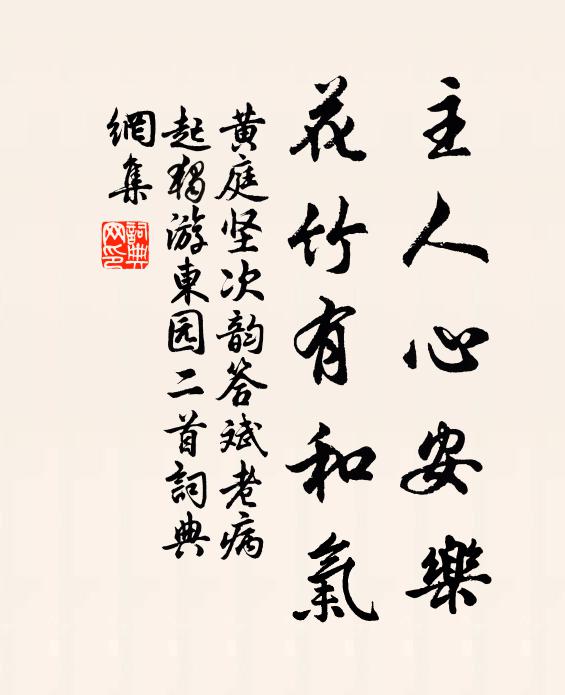 主人心安樂
花竹有和氣
黄庭坚次韵答斌老病
起獨游東园二首詞典
網集
詞典
网印